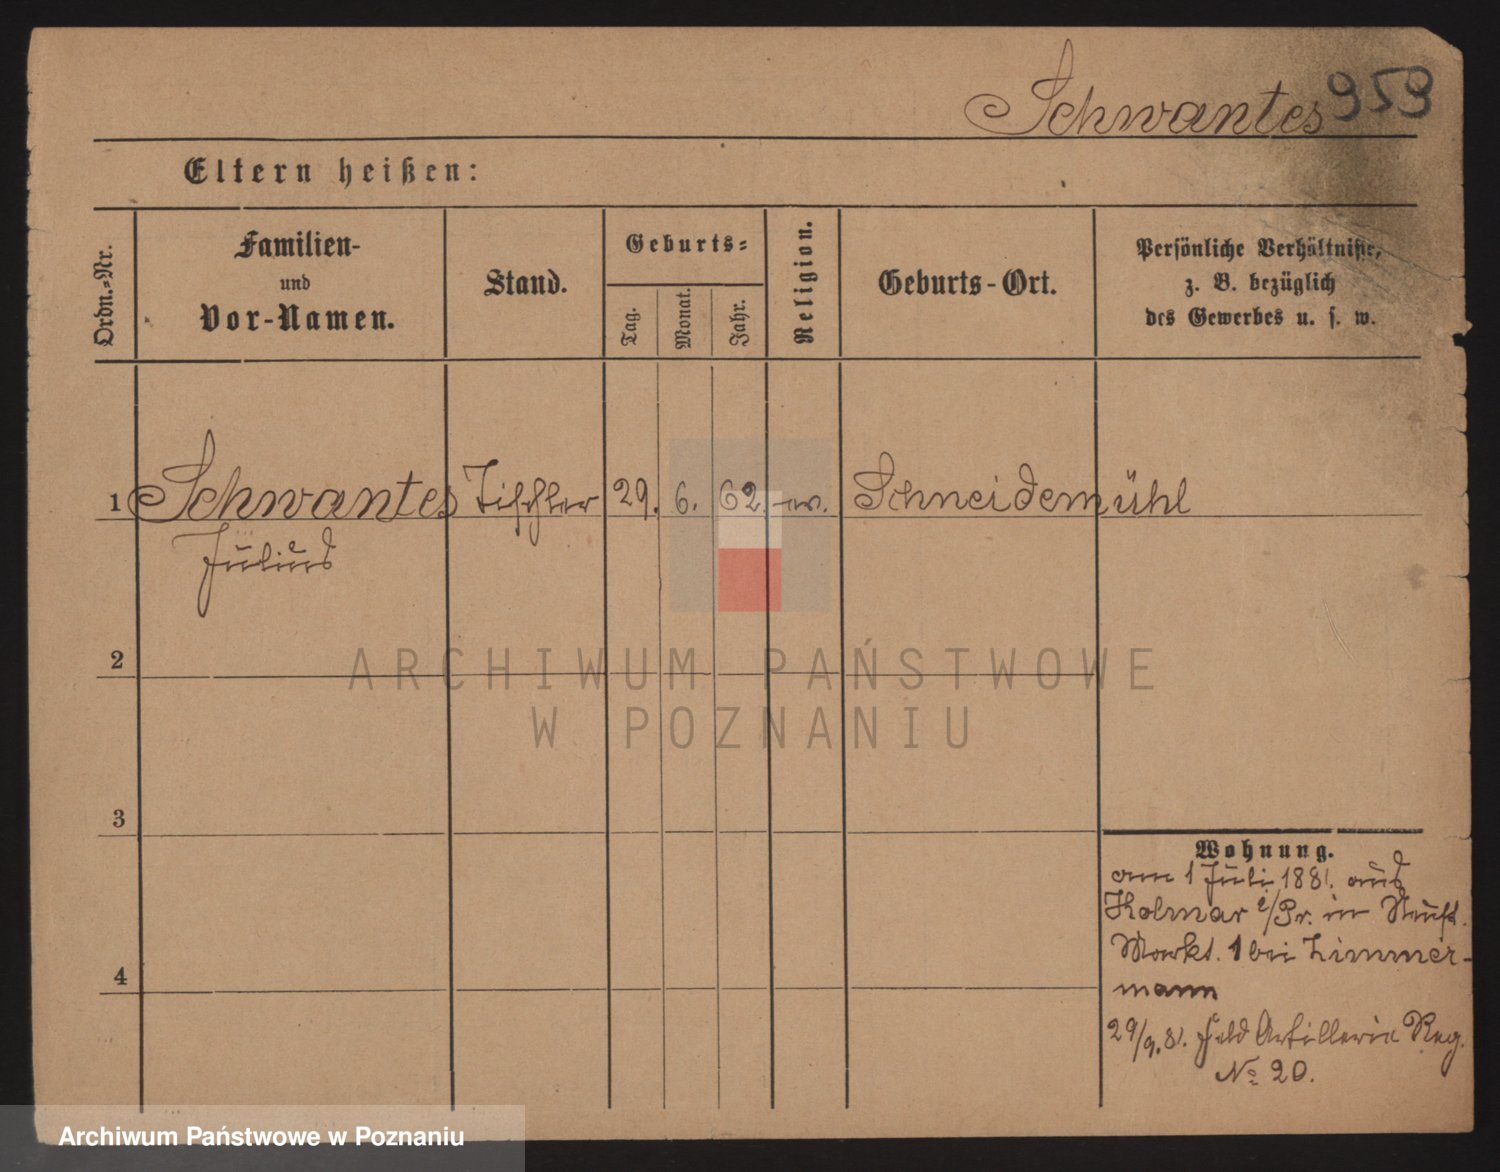 Schwantes 959
Eltern heißen:
Ordn.=Nr.
Familien-
und
Vor-Namen.
Stand.
Geburts=
Tag.
Monat.
Jahr.
Religion.
Geburts-Ort.
Persönliche Verhältnisse,
z. B. bezüglich
des Gewerbes u. s. w.
1 Schwantes Tischler 29. 6. 62. ev. Schneidemühl
Julius
2
3
4
Wohnung.
am 1 Juli 1881. aus
Kolmar i/Pr. in
Markt. 1 bei Zimmer-
mann
29/9.81. Feld Artillerie Reg.
No 20.
ARCHIWUM PAŃSTWOWE
W POZNANIU
Archiwum Państwowe w Poznaniu